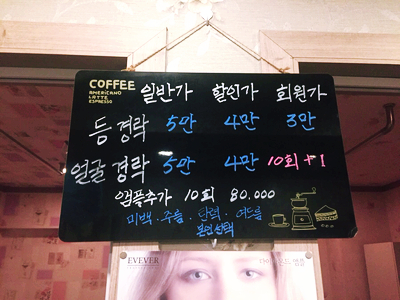 COFFEE
AMERICANO
LATTE
ESPRESSO
일반가 할인가 회원가
등 경락 5만 4만 3만
얼굴 경락 5만 4만 10회 +1
앰플추가 10회 80.000
미백 · 주름 · 탄력 · 여드름
본인선택
EVEVER